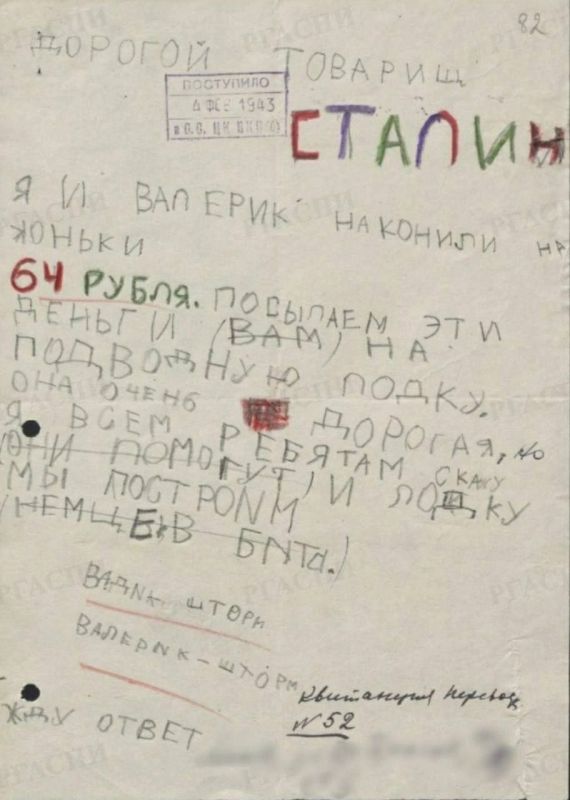 82
ДОРОГОЙ ТОВАРИЩ
ПОСТУПИЛО
4 ФЕВ 1943
СТАЛИН
Я И ВАЛЕРИК НАКОНИЛИ НА
КОНЬКИ
64 РУБЛЯ. ПОСЫЛАЕМ ЭТИ
ДЕНЬГИ (ВАМ) НА
ПОДВОДНУЮ ЛОДКУ.
ОНА ОЧЕНЬ ДОРОГАЯ, НО
Я ВСЕМ РЕБЯТАМ СКАЖУ
(ОНИ ПОМОГУТ) И ЛОДКУ
МЫ ПОСТРОИМ
(НЕМЦЕВ БИТЬ.)
ВАДИК ШТОРМ
ВАЛЕРИК-ШТОРМ
Квитанция перевод
N 52
ЖДУ ОТВЕТ
РГАСПИ